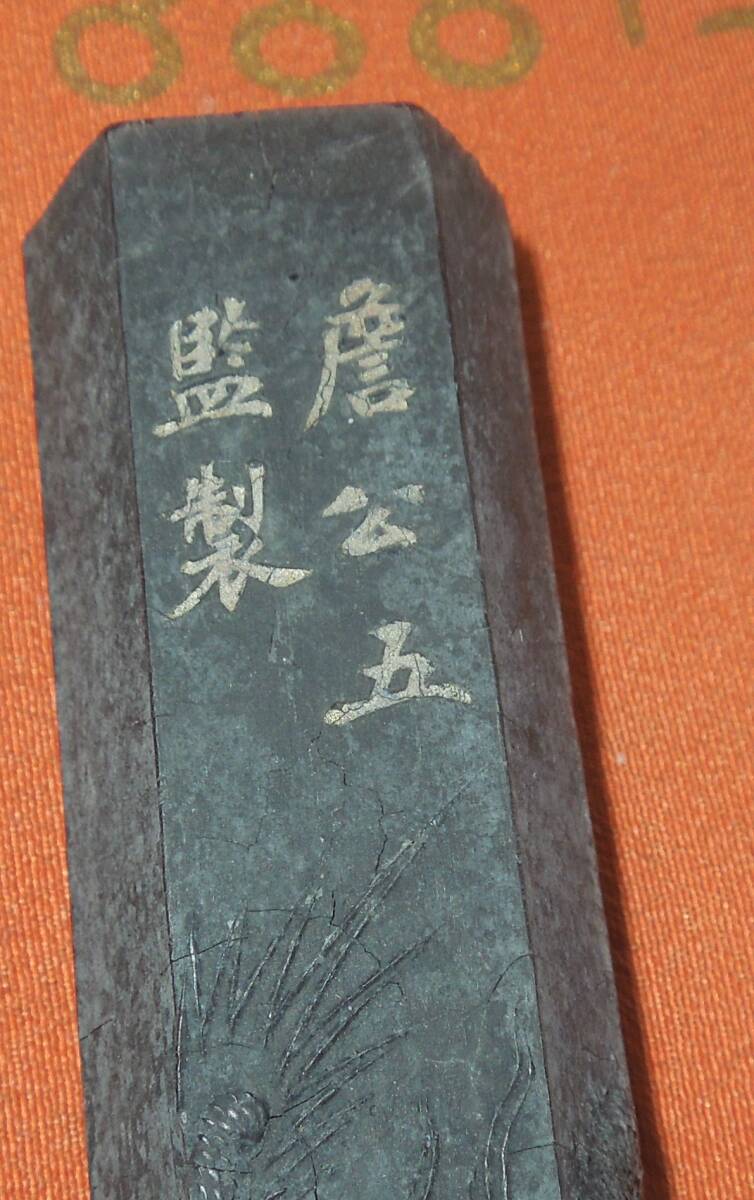 詹公五
監製